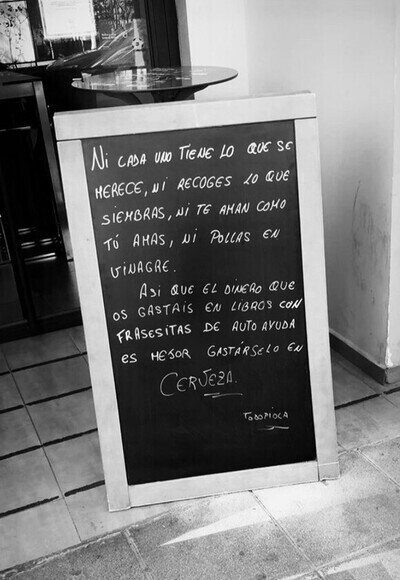 NI CADA UNO TIENE LO QUE SE
MERECE, NI RECOGES LO QUE
SIEMBRAS, NI TE AMAN COMO
TÚ AMAS, NI POLLAS EN
VINAGRE.
ASI QUE EL DINERO QUE
OS GASTAIS EN LIBROS CON
FRASESITAS DE AUTO AYUDA
ES MEJOR GASTÁRSELO EN
CERVEZA.
TODOPIOLA